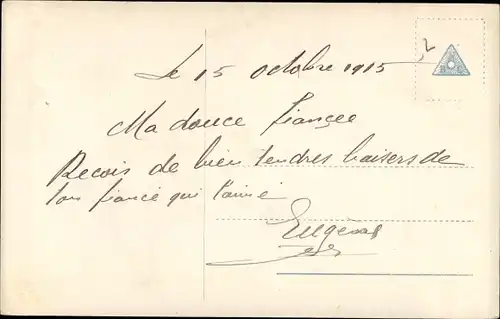 Le 15 octobre 1915
Ma douce fiancée
Recois de bien tendres baisers de
ton fiancé qui t'aime